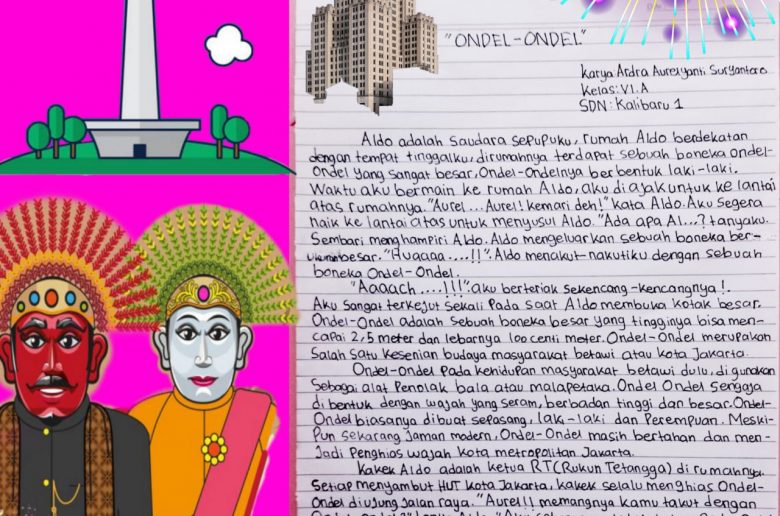 "ONDEL-ONDEL"
Karya Ardra Aurelyanti Suryantoro
Kelas: VI.A
SDN: Kalibaru 1
Aldo adalah saudara sepupuku, rumah Aldo berdekatan
dengan tempat tinggalku, dirumahnya terdapat sebuah boneka ondel-
ondel yang sangat besar. Ondel-Ondelnya berbentuk laki-laki.
Waktu aku bermain ke rumah Aldo, aku di ajak untuk ke lantai
atas rumahnya. "Aurel... Aurel! kemari deh!" kata Aldo. Aku segera
naik ke lantai atas untuk menyusul Aldo. "Ada apa Al...? tanyaku.
Sembari menghampiri Aldo. Aldo mengeluarkan sebuah boneka ber-
ukuran besar. "Huaaaa ....!!". Aldo menakut-nakutiku dengan sebuah
boneka Ondel-Ondel.
"Aaaach ....!!!" aku berteriak sekencang-kencangnya!.
Aku sangat terkejut sekali Pada saat Aldo membuka kotak besar.
Ondel-Ondel adalah sebuah boneka besar yang tingginya bisa men-
capai 2,5 meter dan lebarnya 100 centi meter. Ondel-Ondel merupakan
Salah satu kesenian budaya masyarakat betawi atau kota Jakarta.
Ondel-Ondel Pada kehidupan masyarakat betawi dulu, di gunakan
Sebagai alat Penolak bala atau malapetaka. Ondel Ondel sengaja
di bentuk dengan wajah yang seram, berbadan tinggi dan besar. Ondel-
Ondel biasanya dibuat sepasang, laki-laki dan Perempuan. Meski-
Pun sekarang Jaman modern. Ondel-Ondel masih bertahan dan men-
Jadi Penghias wajah kota metropolitan Jakarta.
Kakek Aldo adalah ketua RT (Rukun Tetangga) di rumahnya.
Setiap menyambut HUT Kota Jakarta, kakek selalu menghias Ondel-
Ondel di ujung Jalan raya. "Aurel!! memangnya kamu takut dengan